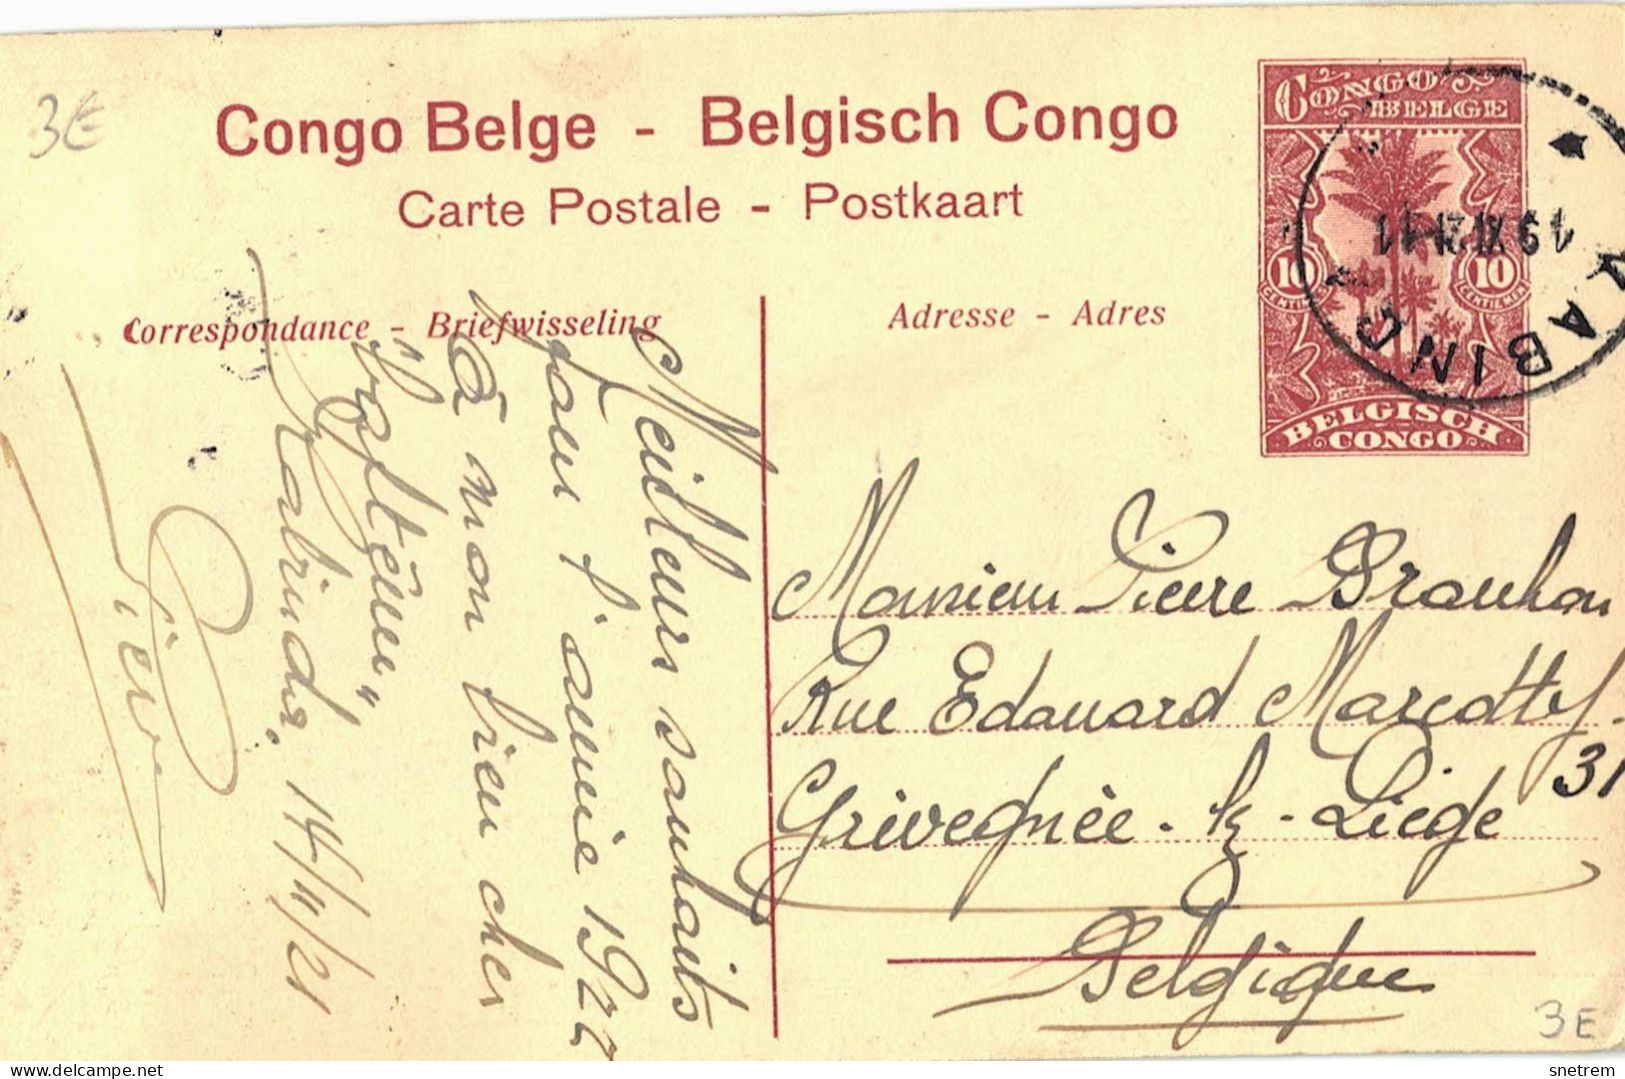 3E
Congo Belge - Belgisch Congo
Carte Postale - Postkaart
CONGO
BELGE
10
10
CENTIMES
CENTIEMEN
BELGISCH
CONGO
KABINDA
19 XI 21 11
Correspondance - Briefwisseling
Adresse - Adres
Meilleurs souhaits
pour l'année 1922
à mon bien cher
Kabinda, 14/11/21
Pierre
Monsieur Pierre Brouhon
Rue Edouard Marcotty
31
Grivegnée - lz - Liège
Belgique
3E
Delcampe.net
snetrem